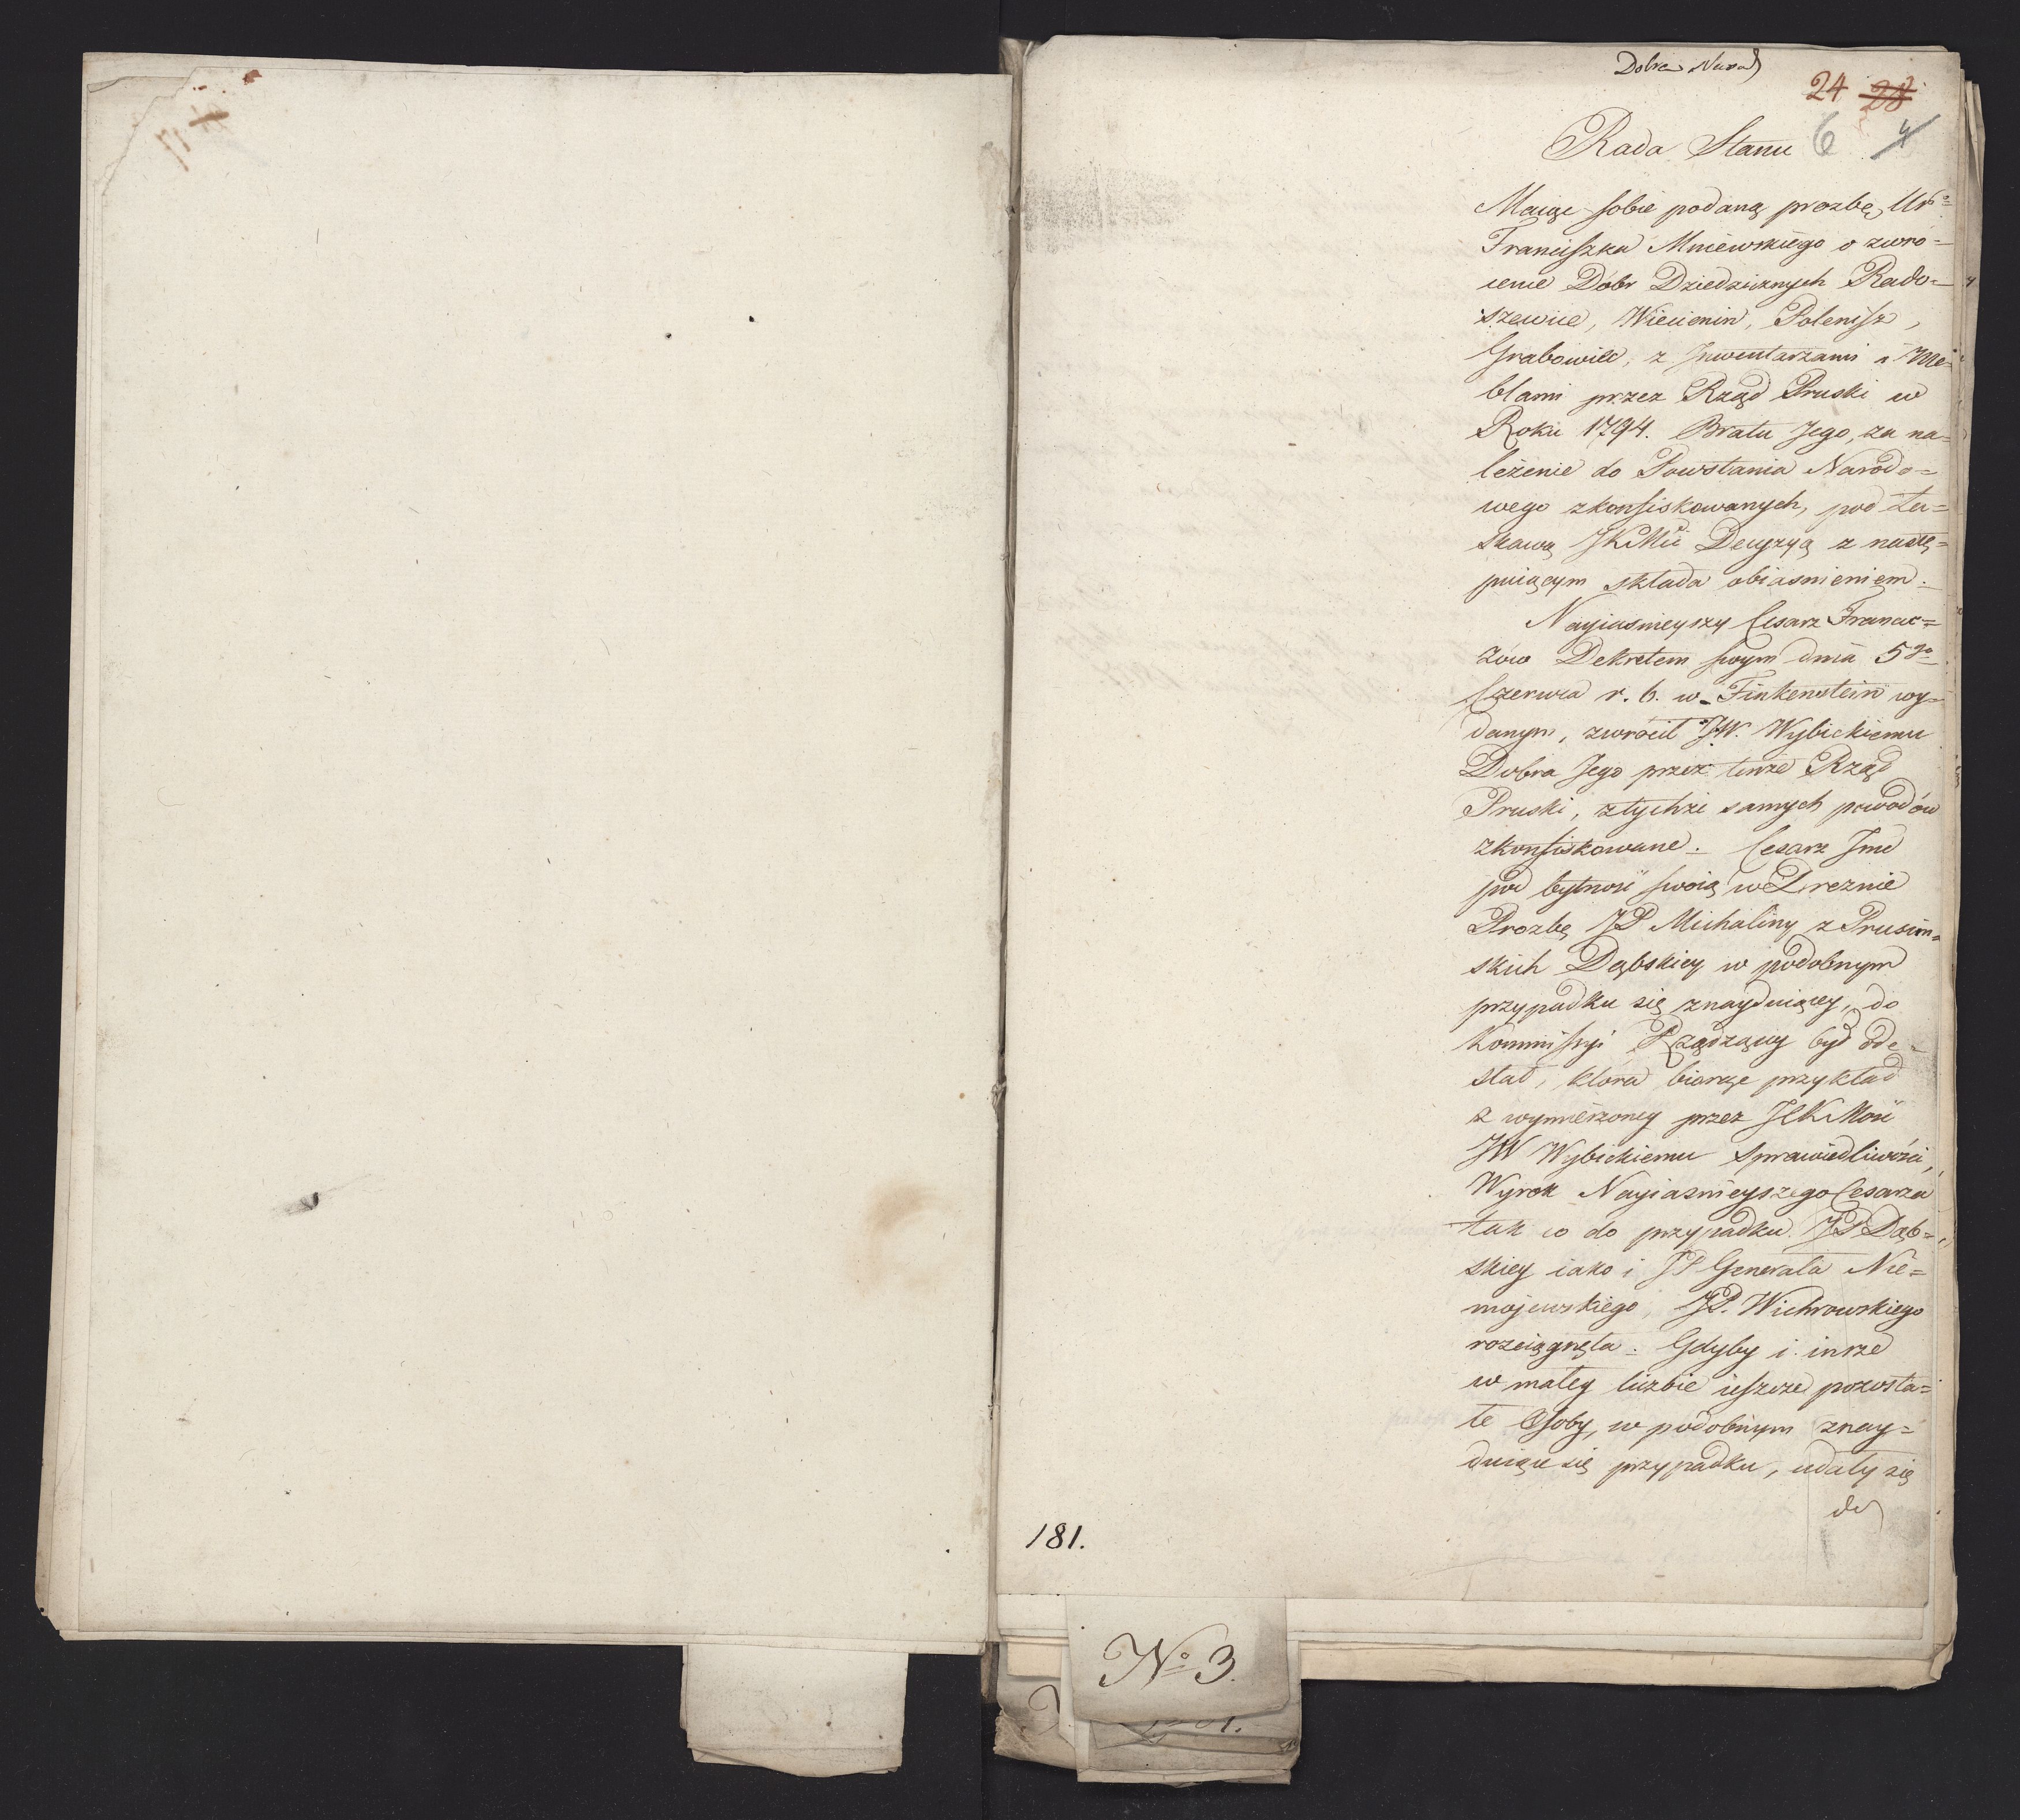 Dobra Narod
24 28
6 4
Rada Stanu
Maiąc sobie podaną prozbę Ur°
Franciszka Mniewskiego o zwró=
cenie Dóbr Dziedzicznych Rado=
szewice, Wiecienin, Polenisz,
Grabowiec, z Inwentarzami i Me=
blami przez Rząd Pruski w
Roku 1794. Bratu Jego, za na=
leżenie do Powstania Narodo=
wego zkonfiskowanych, pod Ła=
skawą JKMci Decyzyą z nastę=
puiącym składa obiasnieniem.
Nayiasnieyszy Cesarz Francu=
zów Dekretem swym dnia 5go
Czerwca r. b. w Finkenstein wy=
danym, zwrócił JW. Wybickiemu
Dobra Jego przez tenże Rząd
Pruski, z tychże samych powodów
zkonfiskowane. Cesarz Jmć
pod bytność swoią w Dreznie
Prozbę JP Michaliny z Prusim=
skich Dąbskiey w podobnym
przypadku się znayduiącey, do
Kommissyi Rządzącey był ode=
słał, która biorąc przykład
z wymierzoney przez JCKMość
JW Wybickiemu Sprawiedliwości,
Wyrok Nayiasnieyszego Cesarza
tak co do przypadku JP Dąb=
skiey iako i JP Generała Nie=
mojewskiego, JP. Wichrowskiego
rozciągnęła. Gdyby i inne
w małey liczbie ieszcze pozosta=
łe Osoby, w podobnym znay=
duiące się przypadku, udały się
do
181.
No 3.